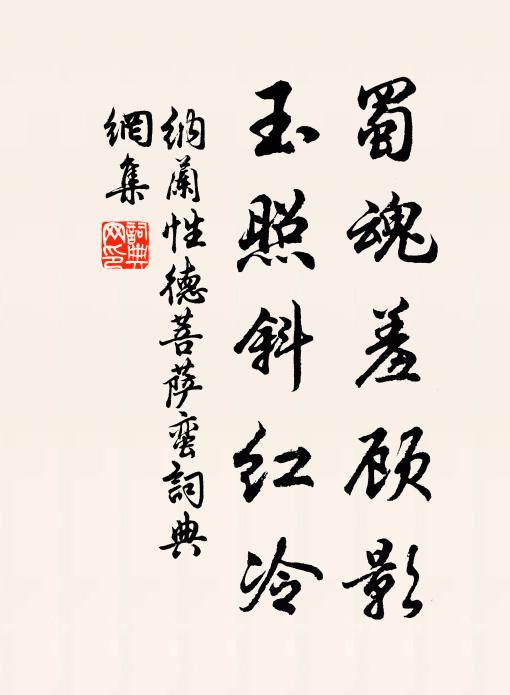 蜀魂羞顾影
玉照斜红冷
纳蘭性德菩萨蛮詞典
網集
詞典网印